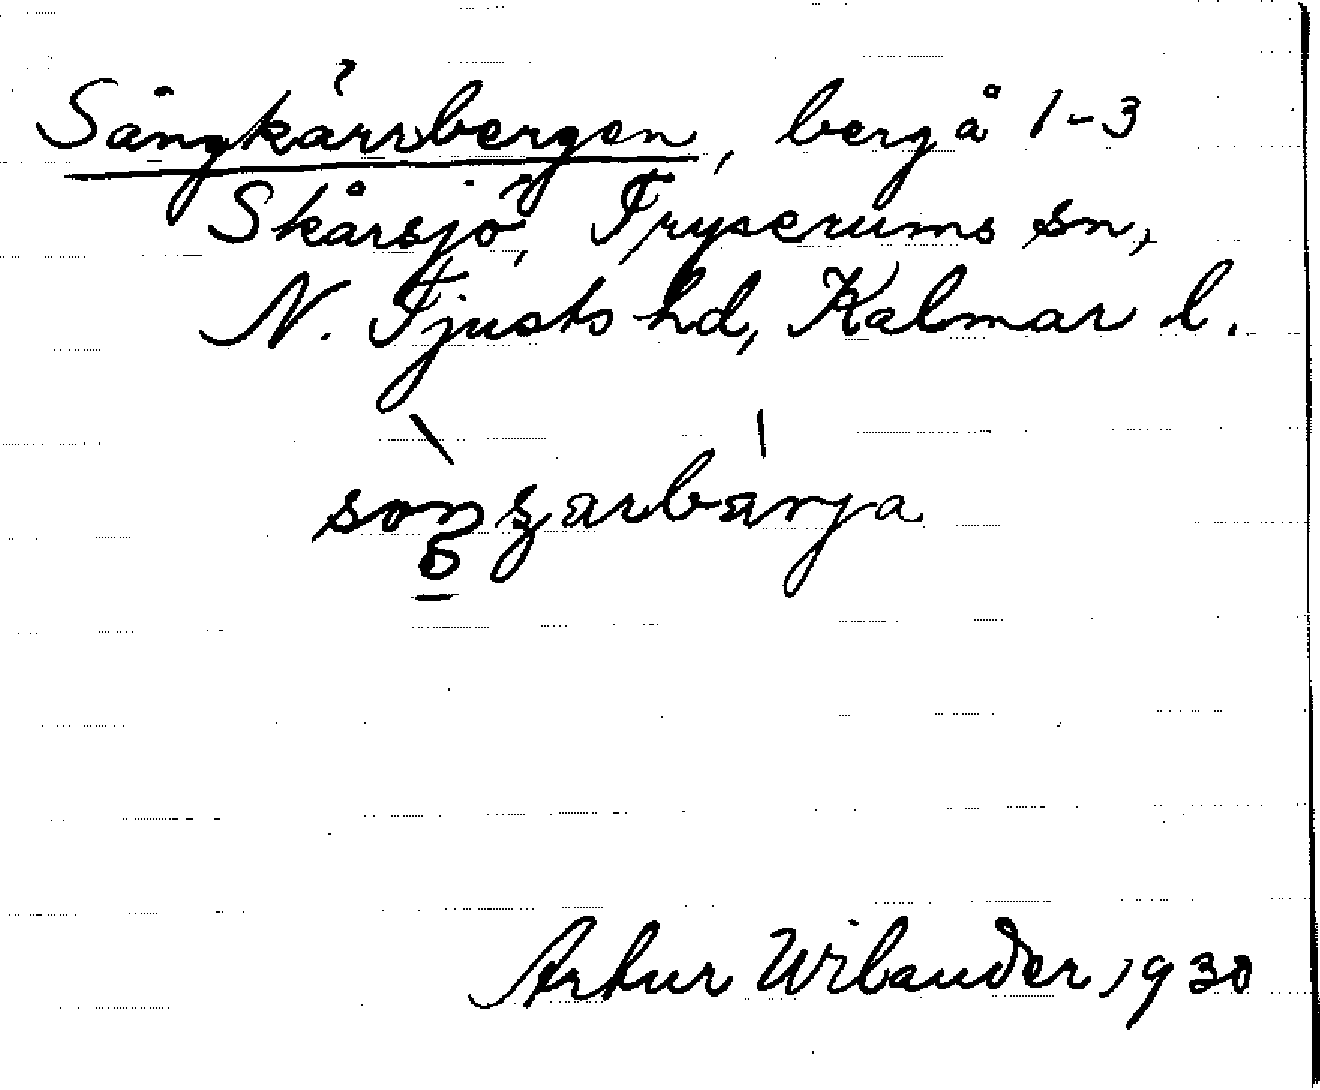 Sångkärrbergen, berg å 1-3
Skårsjö, Tryserums sn,
N. Tjusts hd, Kalmar l.
Artur Wilander, 1930